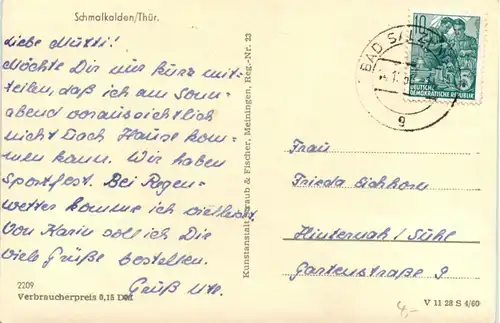 Schmalkalden/Thür.
Liebe Mutti!
Möchte Dir nur kurz mit-
teilen, daß ich am Sonn-
abend voraussichtlich
nicht nach Hause kom-
men kann. Wir haben
Sportfest. Bei Regen-
wetter komme ich vielleicht.
Von Karin soll ich Dir
viele Grüße bestellen.
Gruß Ute.
2209
Verbraucherpreis 0,15 DM
Kunstanstalt Straub & Fischer, Meiningen, Reg.-Nr. 23
BAD SALZUN
g
10
DEUTSCHE
DEMOKRATISCHE REPUBLIK
Frau
Frieda Eichhorn
Hinternah / Suhl
Gartenstraße 9
4,-
V 11 28 S 4/60